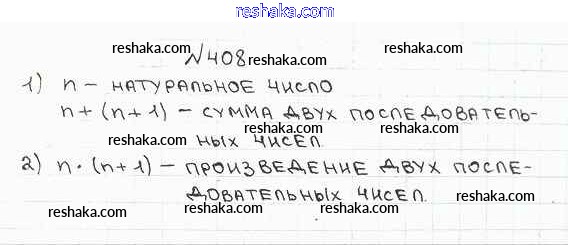 reshaka.com
reshaka.com №408 reshaka.com
1) n – НАТУРАЛЬНОЕ ЧИСЛО
reshaka.com reshaka.com
n + (n + 1) – СУММА ДВУХ ПОСЛЕДОВАТЕЛЬ-
reshaka.com НЫХ ЧИСЕЛ. reshaka.com
2) n · (n + 1) – ПРОИЗВЕДЕНИЕ ДВУХ ПОСЛЕ-
reshaka.com ДОВАТЕЛЬНЫХ ЧИСЕЛ. reshaka.com
reshaka.com reshaka.com